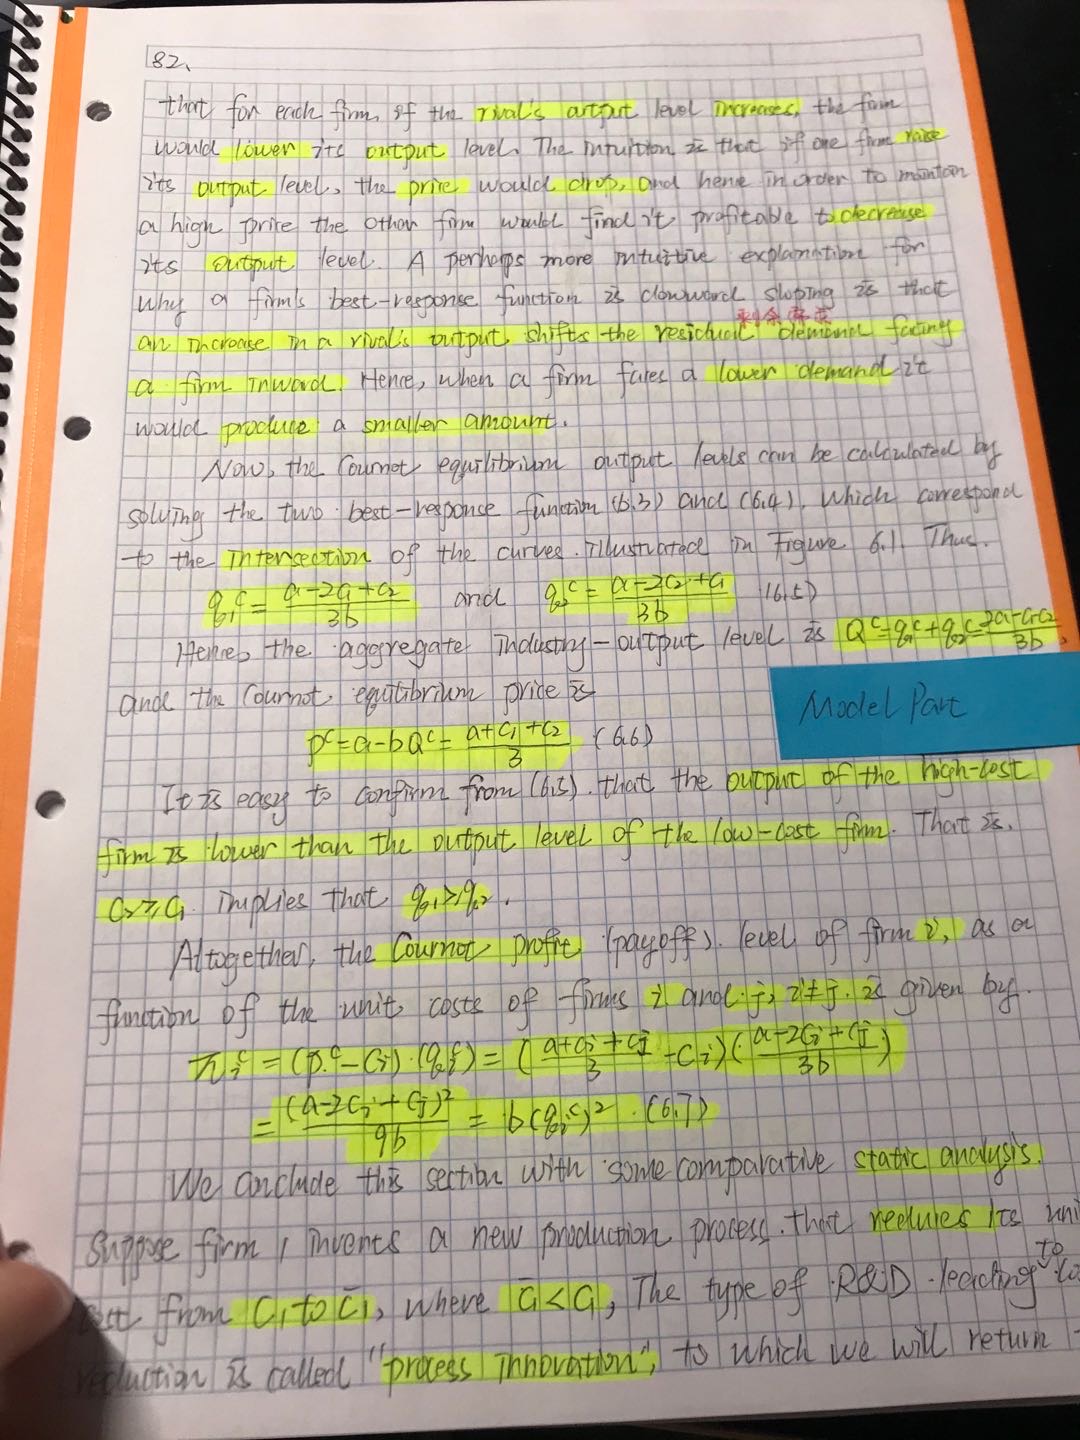 82.
that for each firm, if the rival's output level increases, the firm
would lower its output level. The intuition is that if one firm raise
its output level, the price would drop, and hence in order to maintain
a high price the other firm would find it profitable to decrease
its output level. A perhaps more intuitive explanation for
why a firm's best-response function is downward sloping is that
剩余需求
an increase in a rival's output shifts the residual demand facing
a firm inward. Hence, when a firm faces a lower demand it
would produce a smaller amount.
Now, the Cournot equilibrium output levels can be calculated by
solving the two best-response function (6.3) and (6.4), which correspond
to the intersection of the curves illustrated in Figure 6.1. Thus.
q₁ᶜ = (a-2c₁+c₂)/3b and q₂ᶜ = (a-2c₂+c₁)/3b (6.5)
Hence, the aggregate industry-output level is Qᶜ=q₁ᶜ+q₂ᶜ=(2a-c₁-c₂)/3b,
and the Cournot equilibrium price is
Model Part
pᶜ=a-bQᶜ= (a+c₁+c₂)/3 (6.6)
It is easy to confirm from (6.5). that the output of the high-cost
firm is lower than the output level of the low-cost firm. That is.
c₂≥c₁ implies that q₁≥q₂.
Altogether, the Cournot profit (payoff) level of firm i, as a
function of the unit costs of firms i and j, i≠j. is given by.
πᵢᶜ = (pᶜ-cᵢ)·(qᵢᶜ) = ((a+cᵢ+cⱼ)/3 - cᵢ)((a-2cᵢ+cⱼ)/3b)
= (a-2cᵢ+cⱼ)²/9b = b(qᵢᶜ)². (6.7)
We conclude this section with some comparative static analysis.
Suppose firm 1 invents a new production process that reduces its uni
cost from c₁ to c̄₁, where c̄₁<c₁, The type of R&D leading to co
reduction is called "process innovation", to which we will return